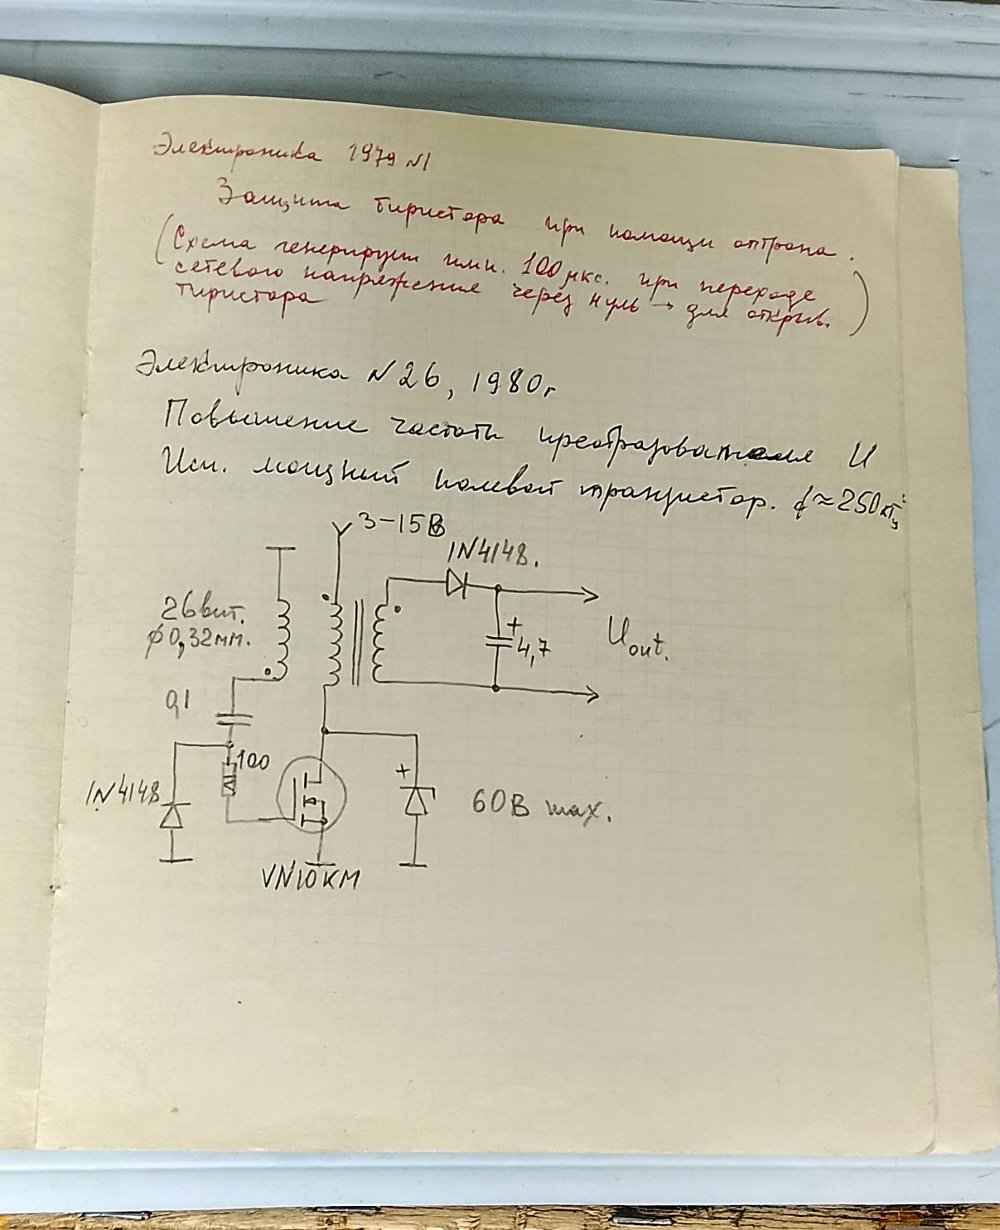 Электроника 1979 N1
Защита тиристора при помощи оптрона.
(Схема генерирует имп. 100 мкс. при переходе
сетевого напряжение через нуль → для открыв.
тиристора)
Электроника N26, 1980г
Повышение частоты преобразователя U
Исп. мощный полевой транзистор. f ≈ 250 кГц
3-15В
1N4148.
26 вит.
ϕ0,32мм.
+
4,7
Uout.
0,1
100
1N4148
+
60В max.
VN10KM